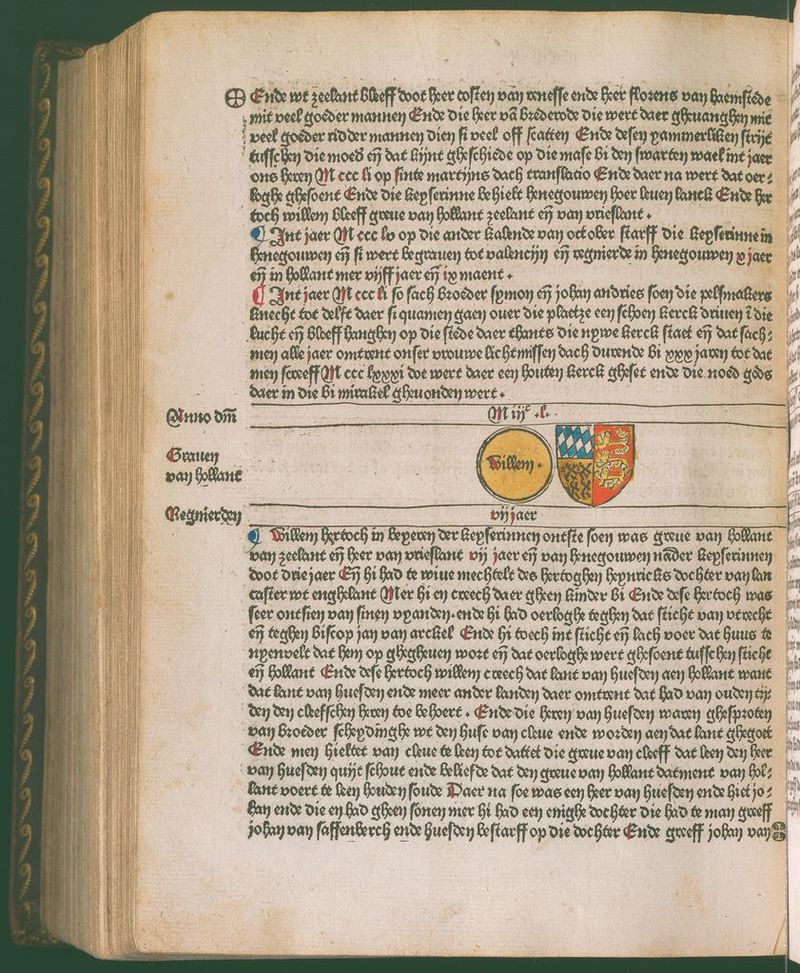 Ende wt zeelant bleeff doot heer costen van renesse ende heer florens van haemstede
mit veel goeder mannen Ende die heer vā brederode die wert daer gheuanghen mit
veel goeder ridder mannen dien si veel off scatten Ende desen yammerliken strijt
tusschen die moed eñ dat kijnt gheschiede op die mase bi den swarten wael int jaer
ons heren M ccc li op sinte martijns dach translatio Ende daer na wert dat oer⸗
loghe ghesoent Ende die keyserinne behielt henegouwen hoer leuen lanck Ende her
toch willem bleeff greue van hollant zeelant eñ van vrieslant .
¶ Int jaer M ccc lv op die ander kalende van october starff die keyserinne in
henegouwen eñ si wert begrauen tot valencijn eñ regnierde in henegouwen x jaer
eñ in hollant mer vijff jaer eñ ix maent .
¶ Int jaer M ccc li so sach broeder symon eñ johan andries soen die pelsmakers
knecht tot delft daer si quamen gaen ouer die plaetze een schoen kerck driuen ī die
lucht eñ bleeff hanghen op die stede daer thants die nywe kerck staet eñ dat sach⸗
men alle jaer omtrent onser vrouwe lichtmissen dach durende bi xxx jaren tot dat
men screeff M ccc lxxxi doe wert daer een houten kerck gheset ende die noed gods
daer in die bi mirakel gheuonden wert .
Anno dm̄ M iijc .l.
Grauen
van hollant
Willem .
Regnierden vij jaer
¶ Willem hertoch in beyeren der keyserinnen ontste soen was greue van hollant
van zeelant eñ heer van vrieslant vij jaer eñ van henegouwen nader keyserinnen
doot drie jaer Eñ hi had te wiue mechtelt des hertoghen heynricks dochter van lan
caster wt enghelant Mer hi en creech daer gheen kinder bi Ende dese hertoch was
seer ontsien van sinen vyanden. ende hi had oerloghe teghen dat sticht van vtrecht
eñ teghen biscop jan van arckel Ende hi toech int sticht eñ lach voer dat huus te
nyenvelt dat hem op ghegheuen wort eñ dat oerloghe wert ghesoent tusschen sticht
eñ hollant Ende dese hertoch willem creech dat lant van huesden aen hollant want
dat lant van huesden ende meer ander landen daer omtrent dat had van ouden tij⸗
den den cleefschen heren toe behoert . Ende die heren van huesden waren ghesproten
van broeder scheydinghe wt den huse van cleue ende worden aen dat lant ghegoet
Ende men hieltet van cleue te leen tot dattet die greue van cleeff dat leen den heer
van huesden quijt schout ende beliefde dat den greue van hollant datment van hol⸗
lant voert te leen houden soude Daer na soe was een heer van huesden ende hiet jo⸗
han ende die en had gheen sonen mer hi had een enighe dochter die had te man greeff
johan van saffenberch ende huesden bestarff op die dochter Ende greeff johan van